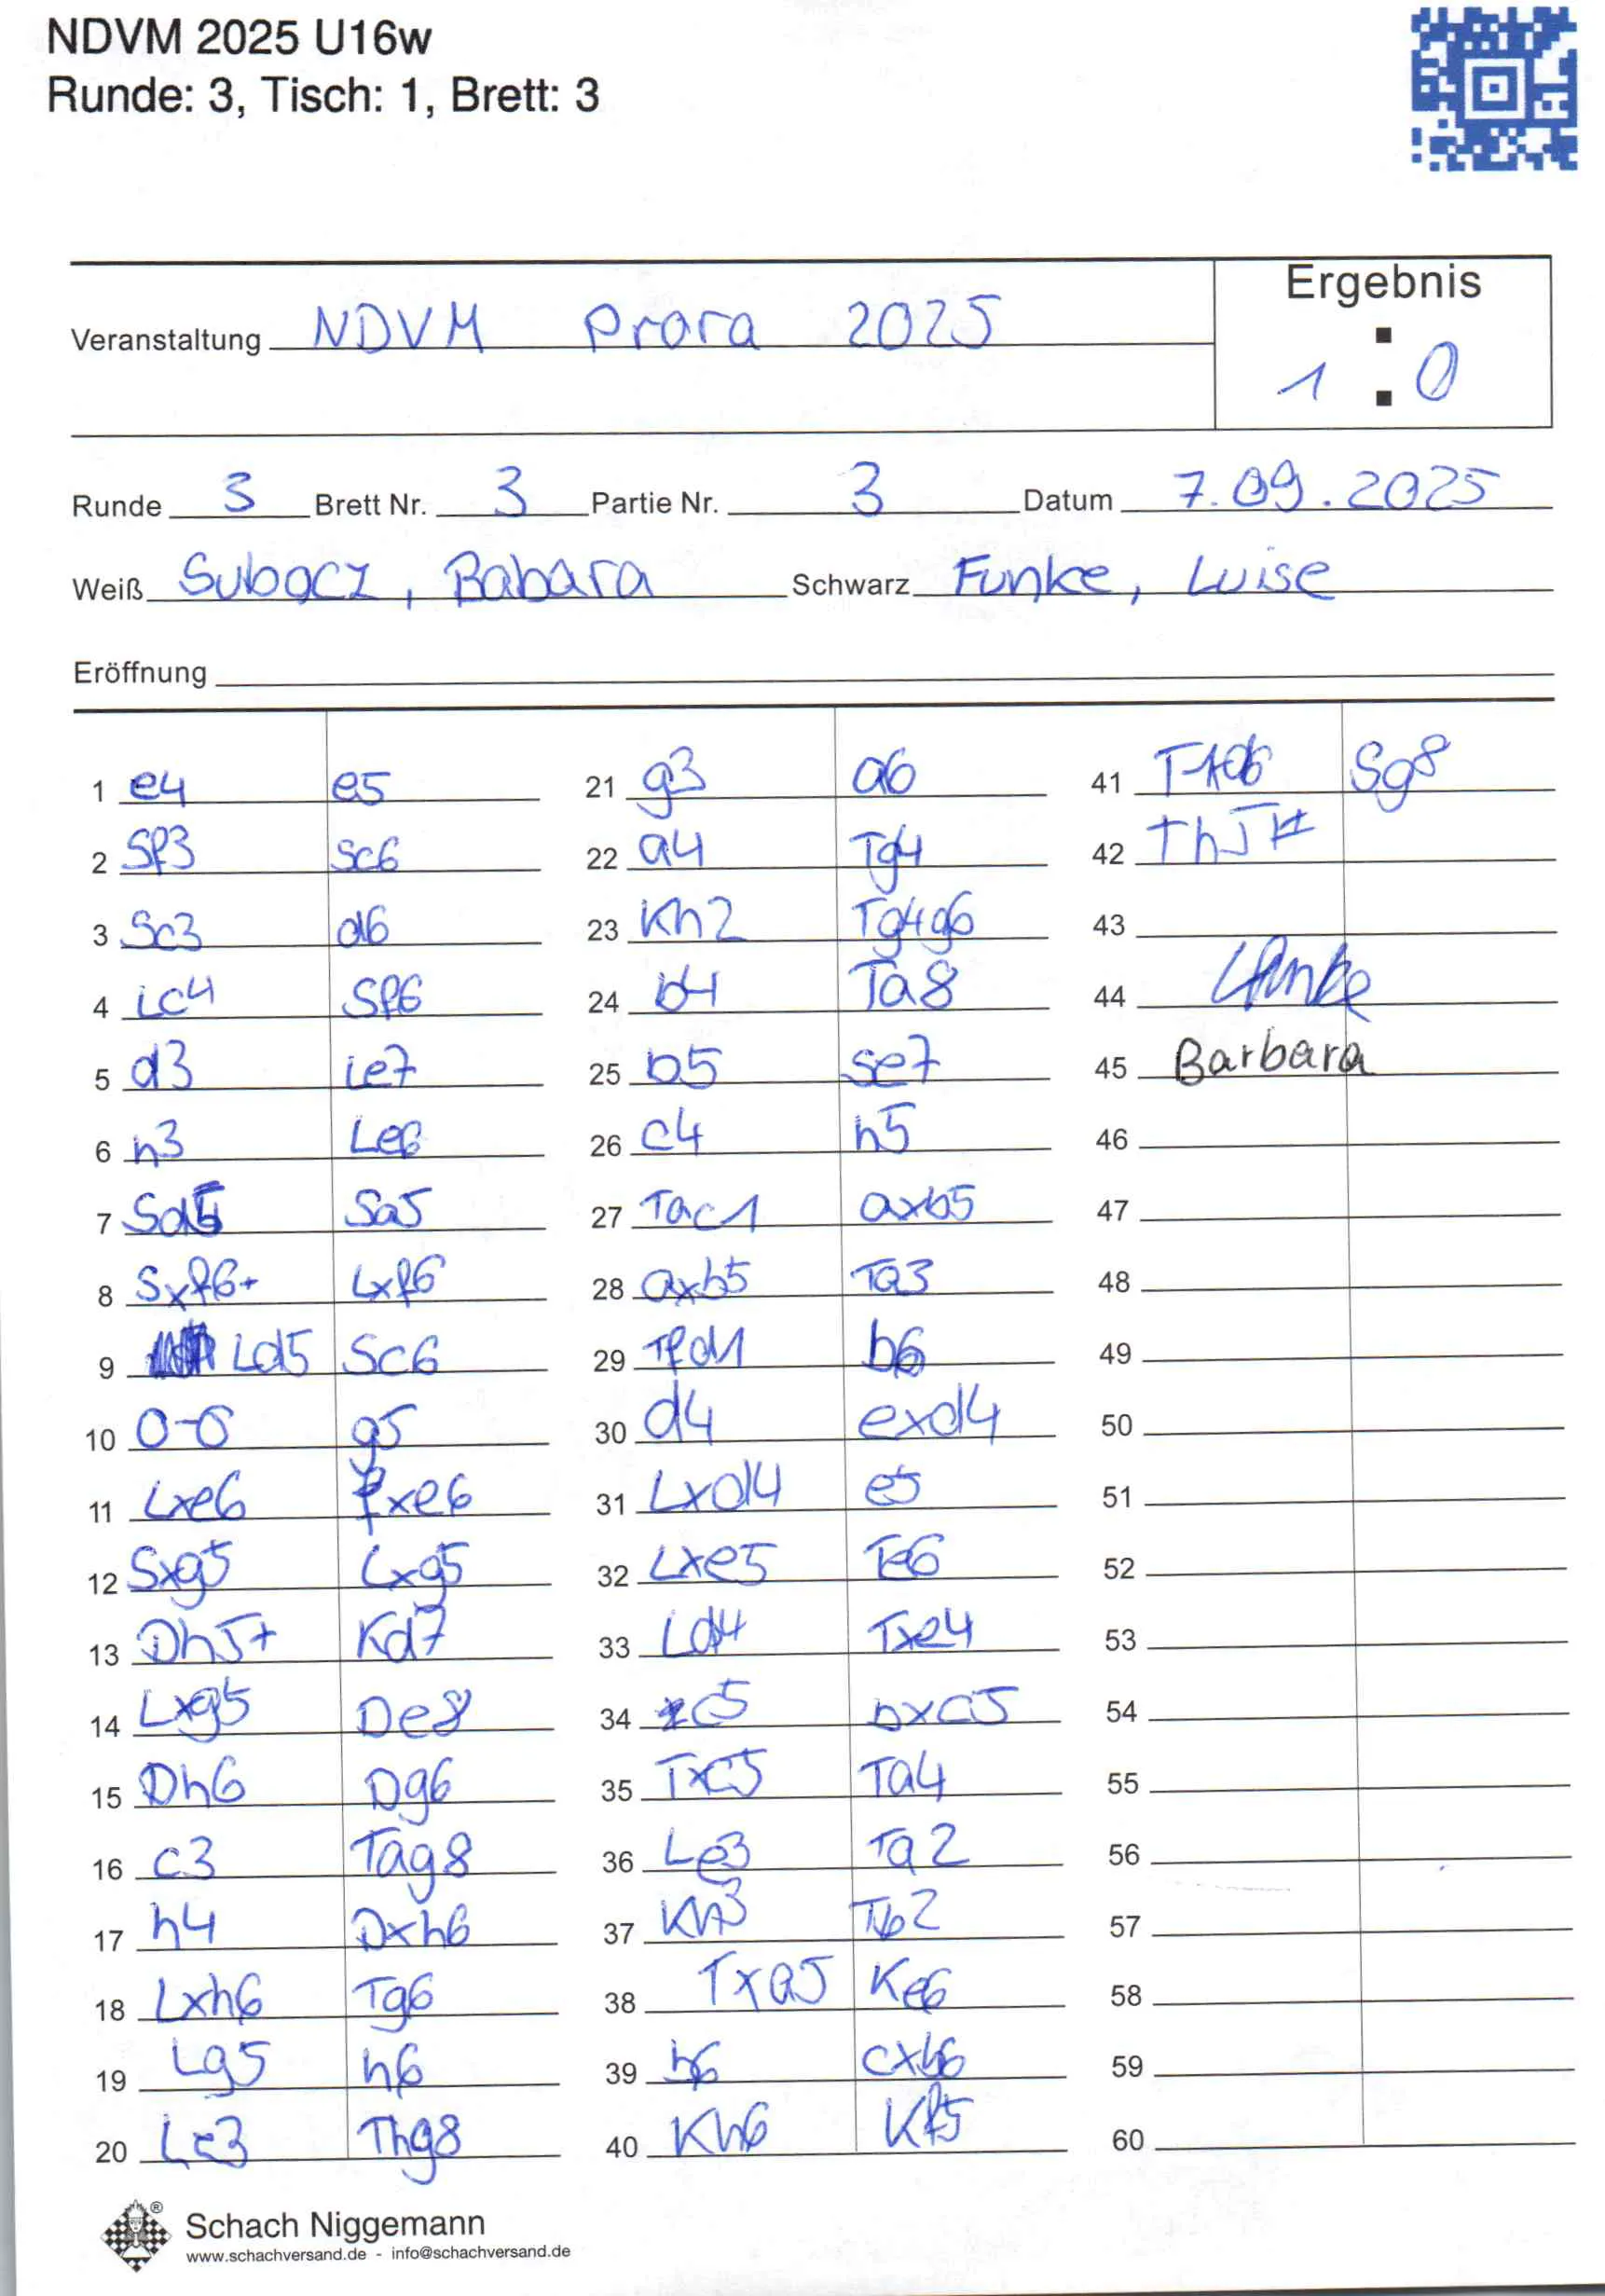 NDVM 2025 U16w
Runde: 3, Tisch: 1, Brett: 3
Ergebnis
Veranstaltung NDVM Prora 2025
1 : 0
Runde 3 Brett Nr. 3 Partie Nr. 3 Datum 7.09.2025
Weiß Subocz, Babara Schwarz Funke, Luise
Eröffnung
1 e4 e5
2 Sf3 Sc6
3 Sc3 d6
4 Lc4 Sf6
5 d3 Le7
6 h3 Le6
7 Sd5 Sa5
8 Sxf6+ Lxf6
9 Ld5 Sc6
10 0-0 g5
11 Lxe6 fxe6
12 Sxg5 Lxg5
13 Dh5+ Kd7
14 Lxg5 De8
15 Dh6 Dg6
16 c3 Tag8
17 h4 Dxh6
18 Lxh6 Tg6
19 Lg5 h6
20 Le3 Thg8
21 g3 a6
22 a4 Tg4
23 Kh2 Tg4g6
24 b4 Ta8
25 b5 Se7
26 c4 h5
27 Tac1 axb5
28 axb5 Ta3
29 Tfd1 b6
30 d4 exd4
31 Lxd4 e5
32 Lxe5 Te6
33 Ld4 Txe4
34 c5 bxc5
35 Txc5 Ta4
36 Le3 Ta2
37 Kh3 Tb2
38 Txa5 Ke6
39 b6 cxb6
40 Kh6 Kf5
41 Sg8
42 Th5#
43
44
45 Barbara
46
47
48
49
50
51
52
53
54
55
56
57
58
59
60
Schach Niggemann
www.schachversand.de - info@schachversand.de